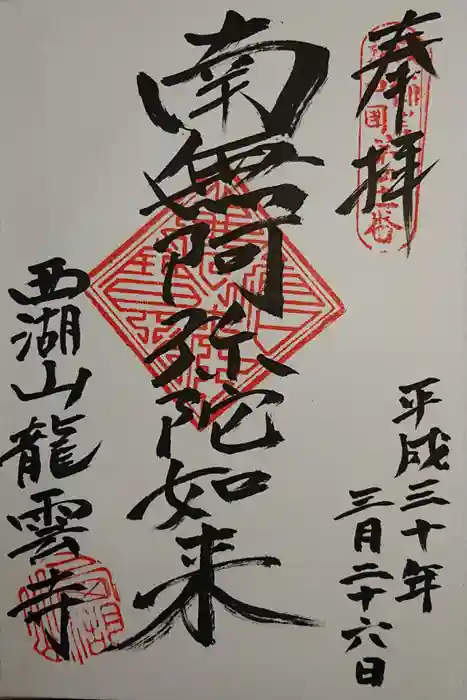 奉拝
平成三十年
三月二十六日
南無阿弥陀如来
西湖山龍雲寺